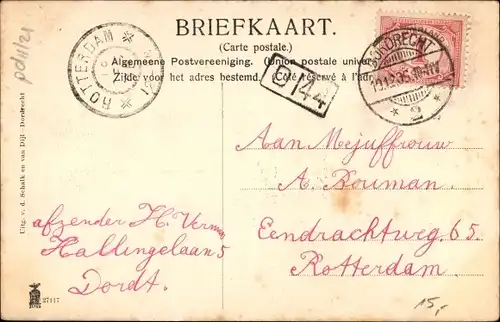 BRIEFKAART.
(Carte postale.)
Algemeene Postvereeniging. (Union postale univer
Zijde voor het adres bestemd. Côté réservé à l'adr
ROTTERDAM
DORDRECHT
2
C 144
pd11/21
Aan Mejuffrouw
A. Bouman.
Eendrachtweg. 65.
Rotterdam.
afzender H. Verm
Hallingelaan 5
Dordt.
Uitg. v. d. Schalk en van Dijl - Dordrecht
27117
15,-